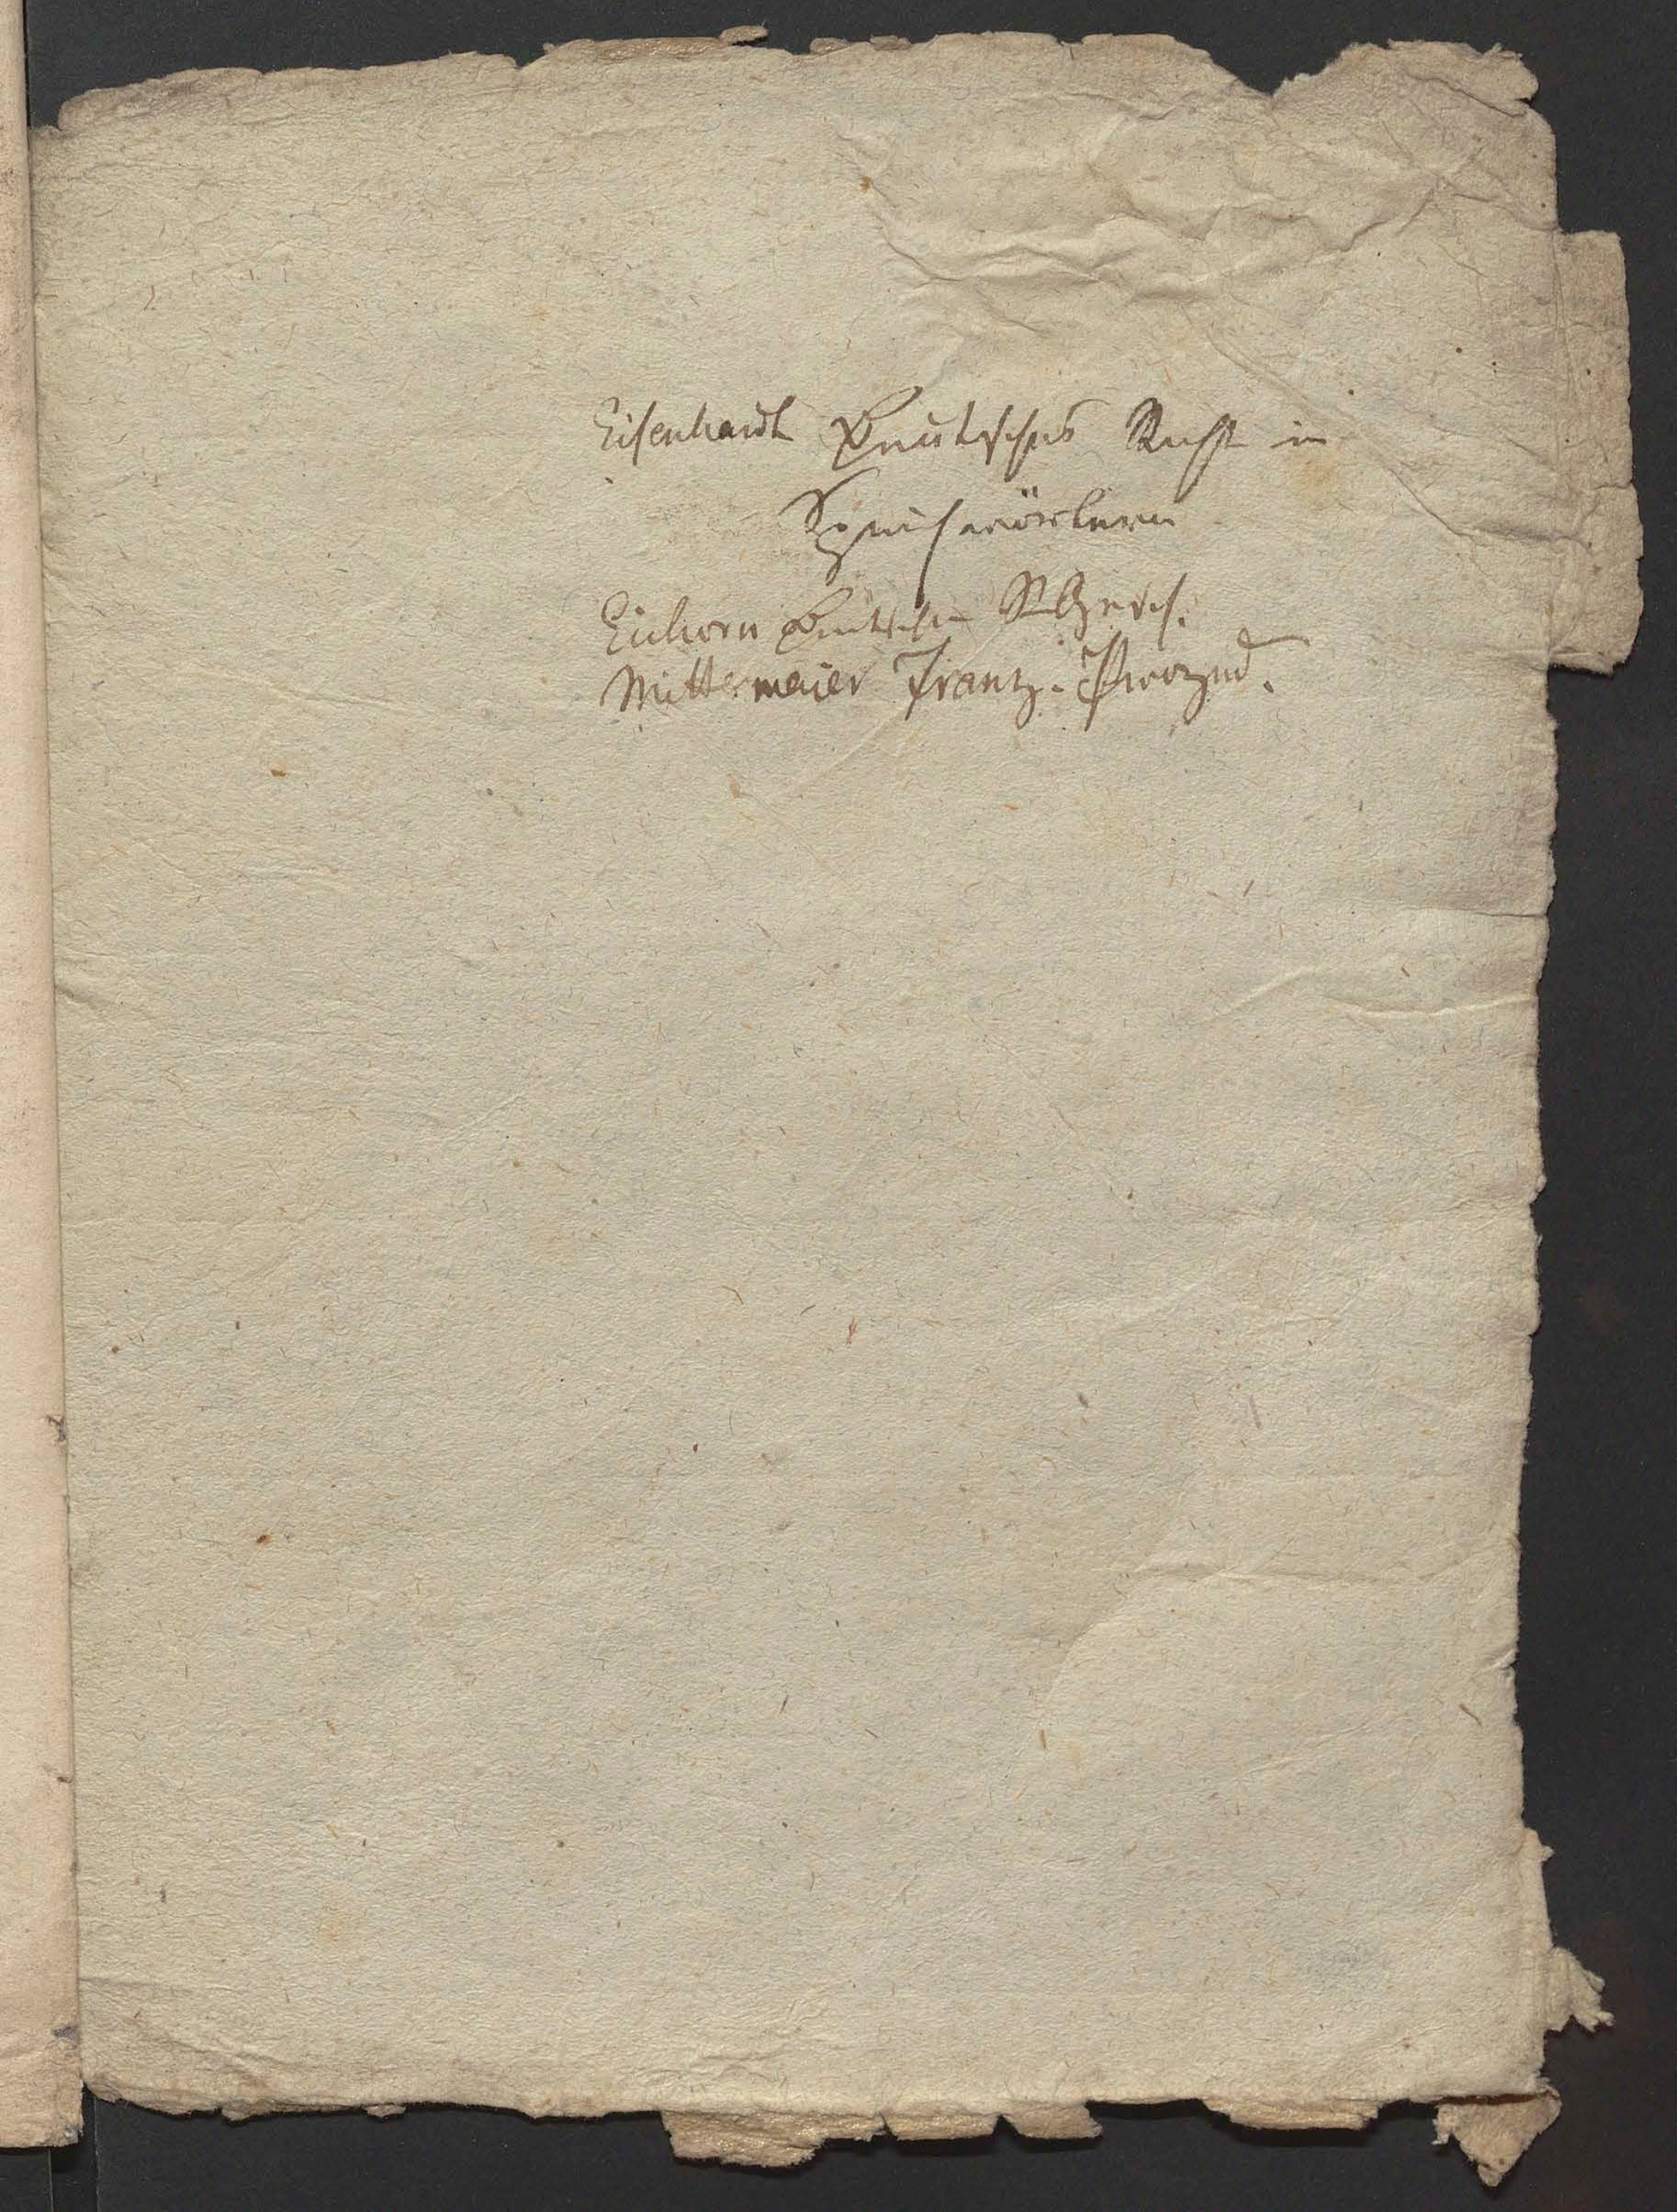 Eisenhardt Deutsches Recht in
Sprichwörtern
Eichorn Deutsche RGesch.
Mittermaier Frantz.